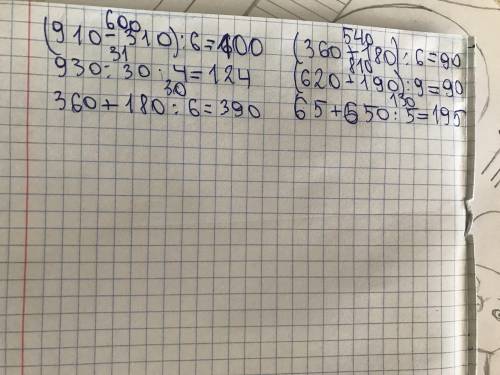 600
(910-310):6=100
31
930:30·4=124
30
360+180:6=390
540
(360+180):6=90
810
(620+190):9=90
130
65+650:5=195